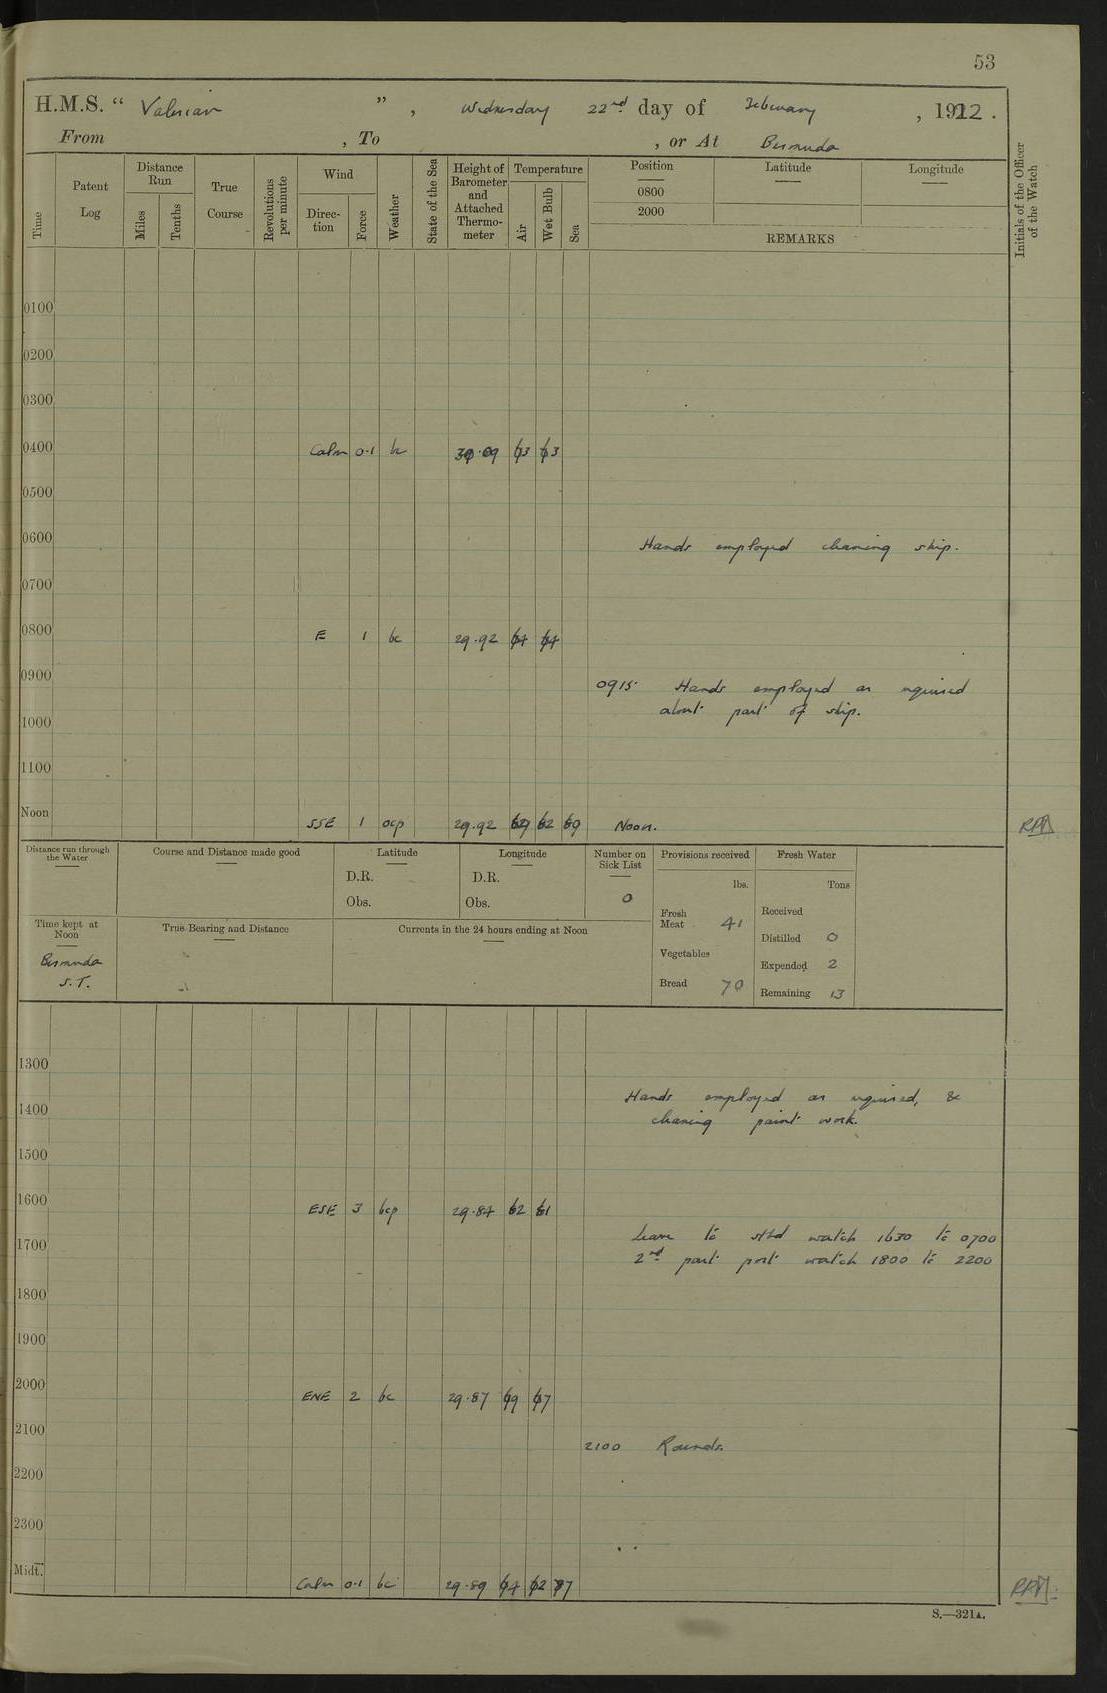 53
H.M.S. " Valerian ", Wednesday 22nd day of February, 1922.
From , To , or At Bermuda
Time
Patent Log
Distance Run
Miles
Tenths
True Course
Revolutions per minute
Wind
Direction
Force
Weather
State of the Sea
Height of Barometer and Attached Thermometer
Temperature
Air
Wet Bulb
Sea
Position
0800
2000
Latitude
Longitude
REMARKS
Initials of the Officer of the Watch
0100
0200
0300
0400 Calm 0·1 63 63
0500
0600 Hands employed cleaning ship.
0700
0800 E 1 bc 29·92 64 64
0900 0915 Hands employed as required
about part of ship.
1000
1100
Noon SSE 1 ocp 29·92 62 69 Noon.
Distance run through the Water
Course and Distance made good
Latitude
D.R.
Obs.
Longitude
D.R.
Obs.
Number on Sick List
0
Provisions received
lbs.
Fresh Meat 41
Vegetables
Bread 70
Fresh Water
Tons
Received
Distilled 0
Expended 2
Remaining 13
Time kept at Noon
Bermuda
S.T.
True Bearing and Distance
Currents in the 24 hours ending at Noon
1300
Hands employed as required, &
1400 cleaning paint work.
1500
1600 ESE 3 bcp 29·87 62 61
Leave to stbd watch 1630 to 0700
1700 2nd part port watch 1800 to 2200
1800
1900
2000 ENE 2 bc 29·87
2100 2100 Rounds.
2200
2300
Midt. Calm 0·1 bc 29·89 64 62
S.—321A.